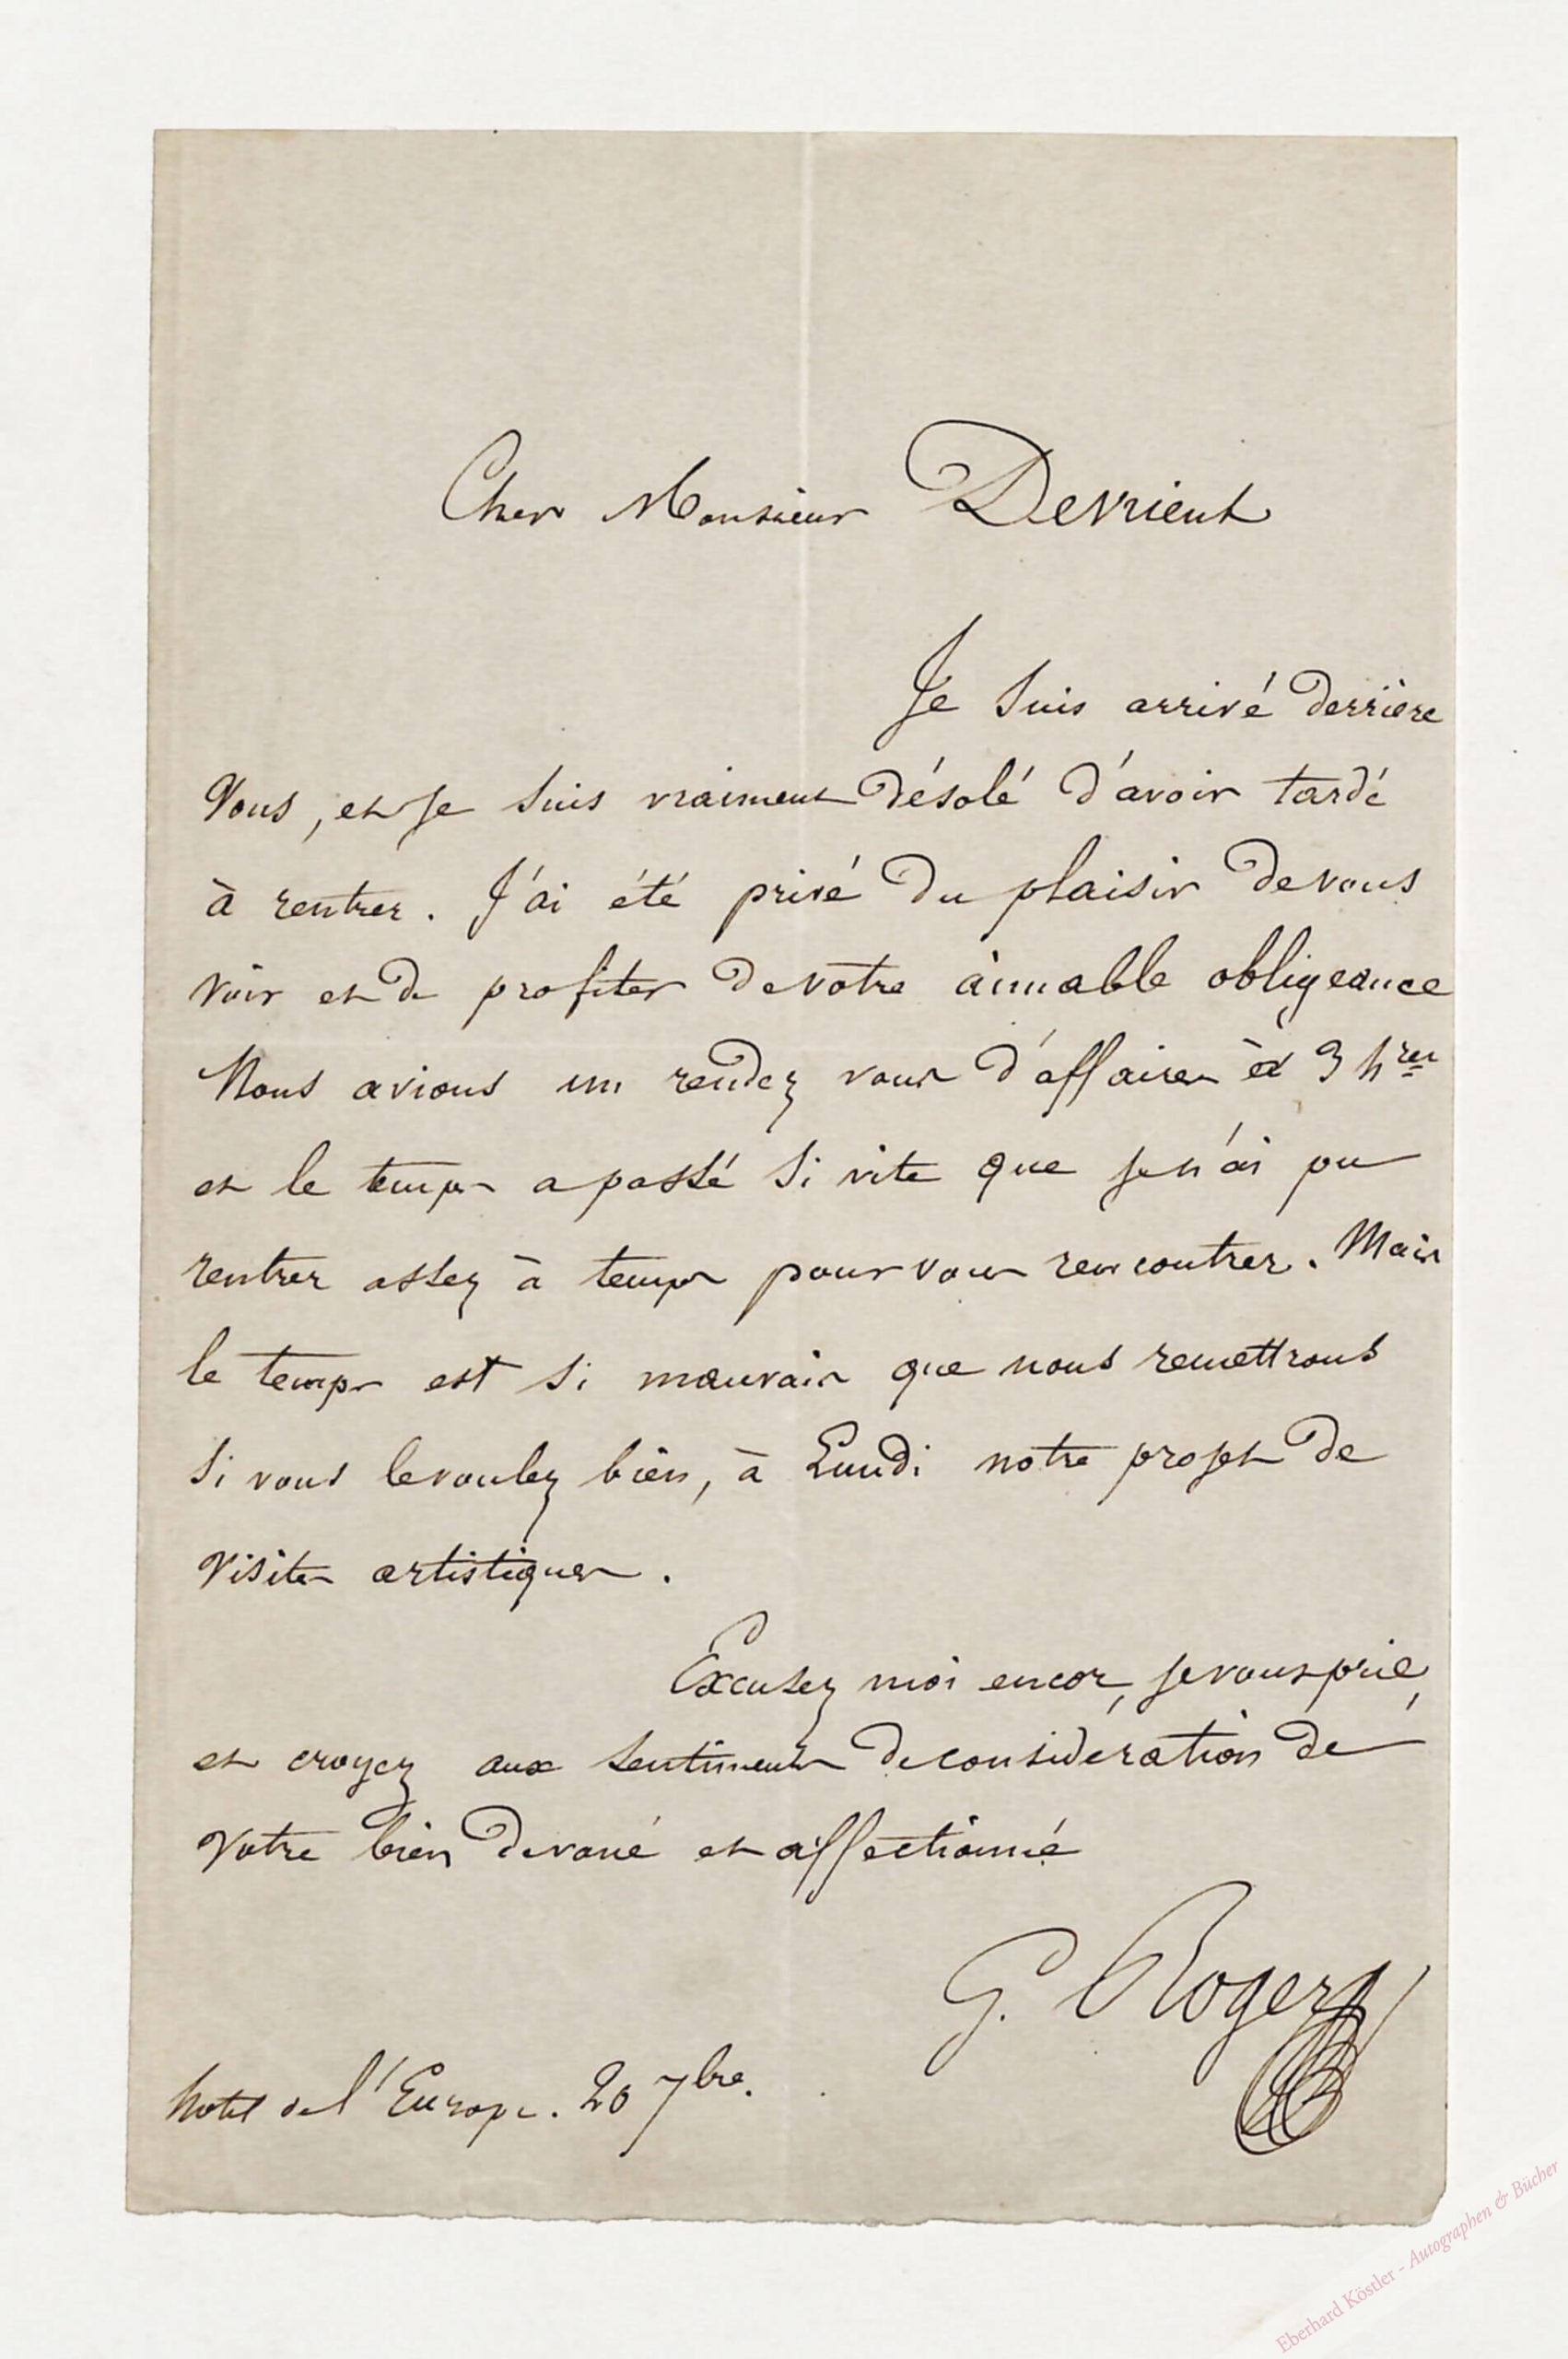 Cher Monsieur Devrient
Je suis arrivé derrière
Vous, et je suis vraiment désolé d'avoir tardé
à rentrer. J'ai été privé du plaisir de vous
voir et de profiter de votre aimable obligeance
Nous avions un rendez vous d'affaires à 3 hres
et le temps a passé si vite que je n'ai pu
rentrer assez à temps pour vous rencontrer. Mais
le temps est si mauvais que nous remettrons
si vous le voulez bien, à Lundi notre projet de
visites artistiques.
Excusez moi encor, je vous prie,
et croyez aux sentiments de considération de
Votre bien dévoué et affectionné
G. Roger
hotel de l'Europe. 20 7bre.
Eberhard Köstler - Autographen & Bücher